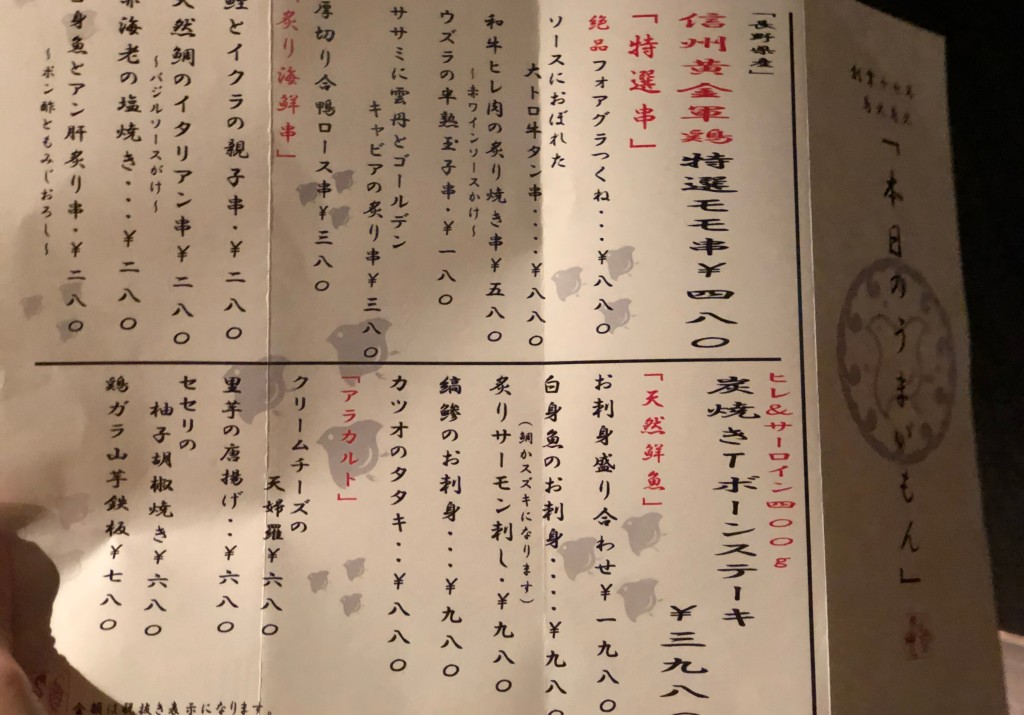 「本日のうまかもん」
「長野県産」
信州黄金軍鶏特選モモ串¥四八〇
「特選串」
絶品フォアグラつくね・・・¥八八〇
ソースにおぼれた
大トロ牛タン串・・・・¥八八〇
和牛ヒレ肉の炙り焼き串¥五八〇
〜赤ワインソースかけ〜
ウズラの半熟玉子串・¥一八〇
ササミに雲丹とゴールデン
キャビアの炙り串¥三八〇
厚切り合鴨ロース串¥三八〇
炙り海鮮串」
鮭とイクラの親子串・¥二八〇
天然鯛のイタリアン串¥二八〇
〜バジルソースがけ〜
赤海老の塩焼き・・・¥二八〇
白身魚とアン肝炙り串・¥二八〇
〜ポン酢ともみじおろし〜
ヒレ&サーロイン四〇〇g
炭焼きTボーンステーキ
¥三九八〇
「天然鮮魚」
お刺身盛り合わせ¥一九八〇
白身魚のお刺身・・・・¥九八〇
(鯛かスズキになります)
炙りサーモン刺し・¥九八〇
縞鯵のお刺身・・・¥九八〇
カツオのタタキ・・¥八八〇
「アラカルト」
クリームチーズの
天婦羅¥六八〇
里芋の唐揚げ・・¥六八〇
セセリの
柚子胡椒焼き¥六八〇
鶏ガラ山芋鉄板¥七八〇
金額は税抜き表示になります。